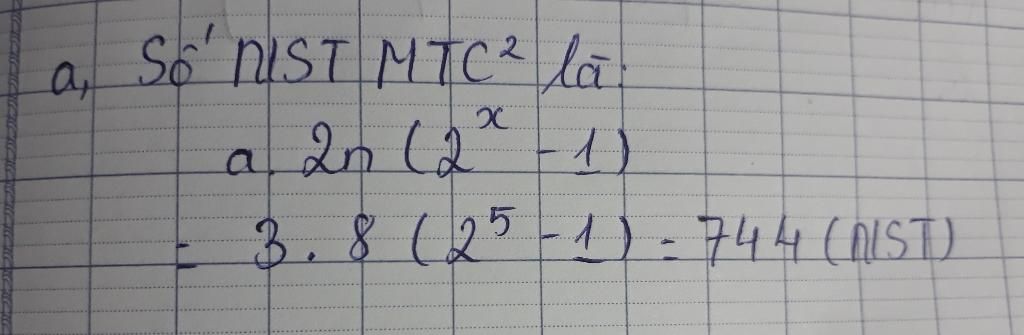 a, Số NST MTC² là:
a. 2n (2ˣ - 1)
= 3 . 8 (2⁵ - 1) = 744 (NST)